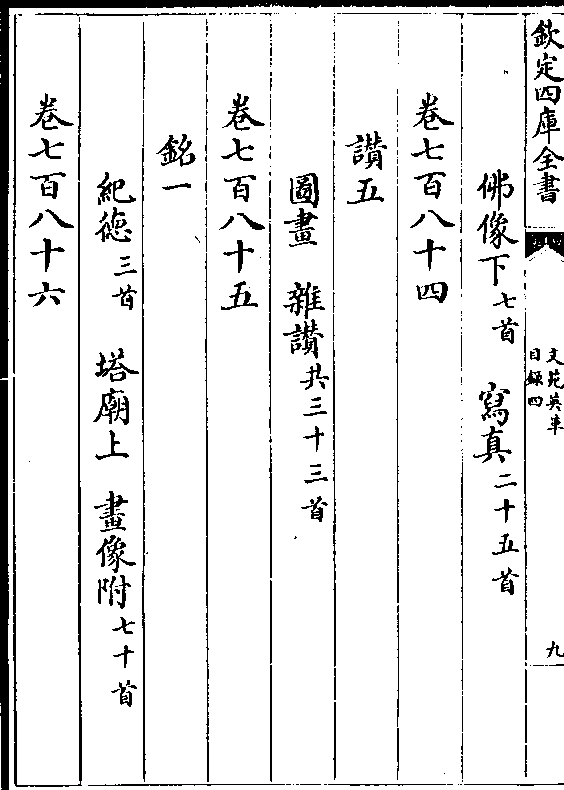 欽定四庫全書
文苑英華
目録四
九
佛像下七首　寫真二十五首
卷七百八十四
讃五
圖畫　雜讃共三十三首
卷七百八十五
銘一
紀徳三首　塔廟上　畫像附七十首
卷七百八十六